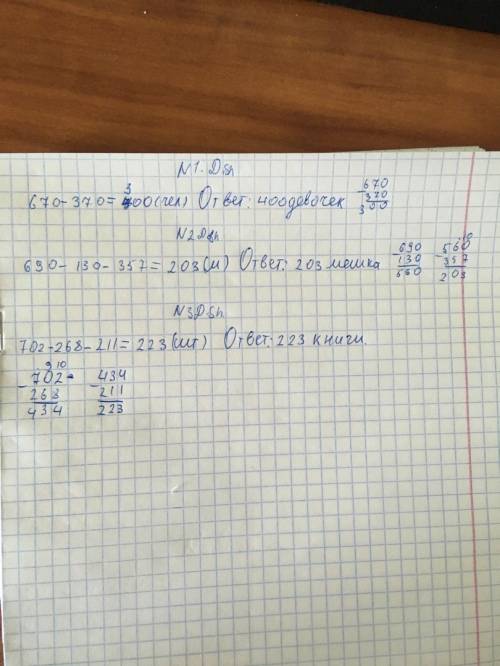 N1. D.sh
670-370=300(чел) Ответ: 400девочек
-670
370
300
N2 D.sh
690-130-357=203(м) Ответ: 203 мешка
-690
130
560
10
-560
357
203
N3D.sh.
702-268-211=223(шт) Ответ: 223 книги.
9 10
-702
268
434
-434
211
223